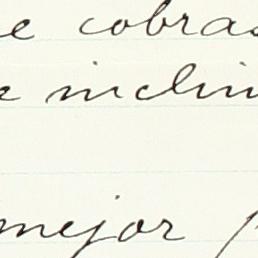 e cobras
e inclin
mejor p